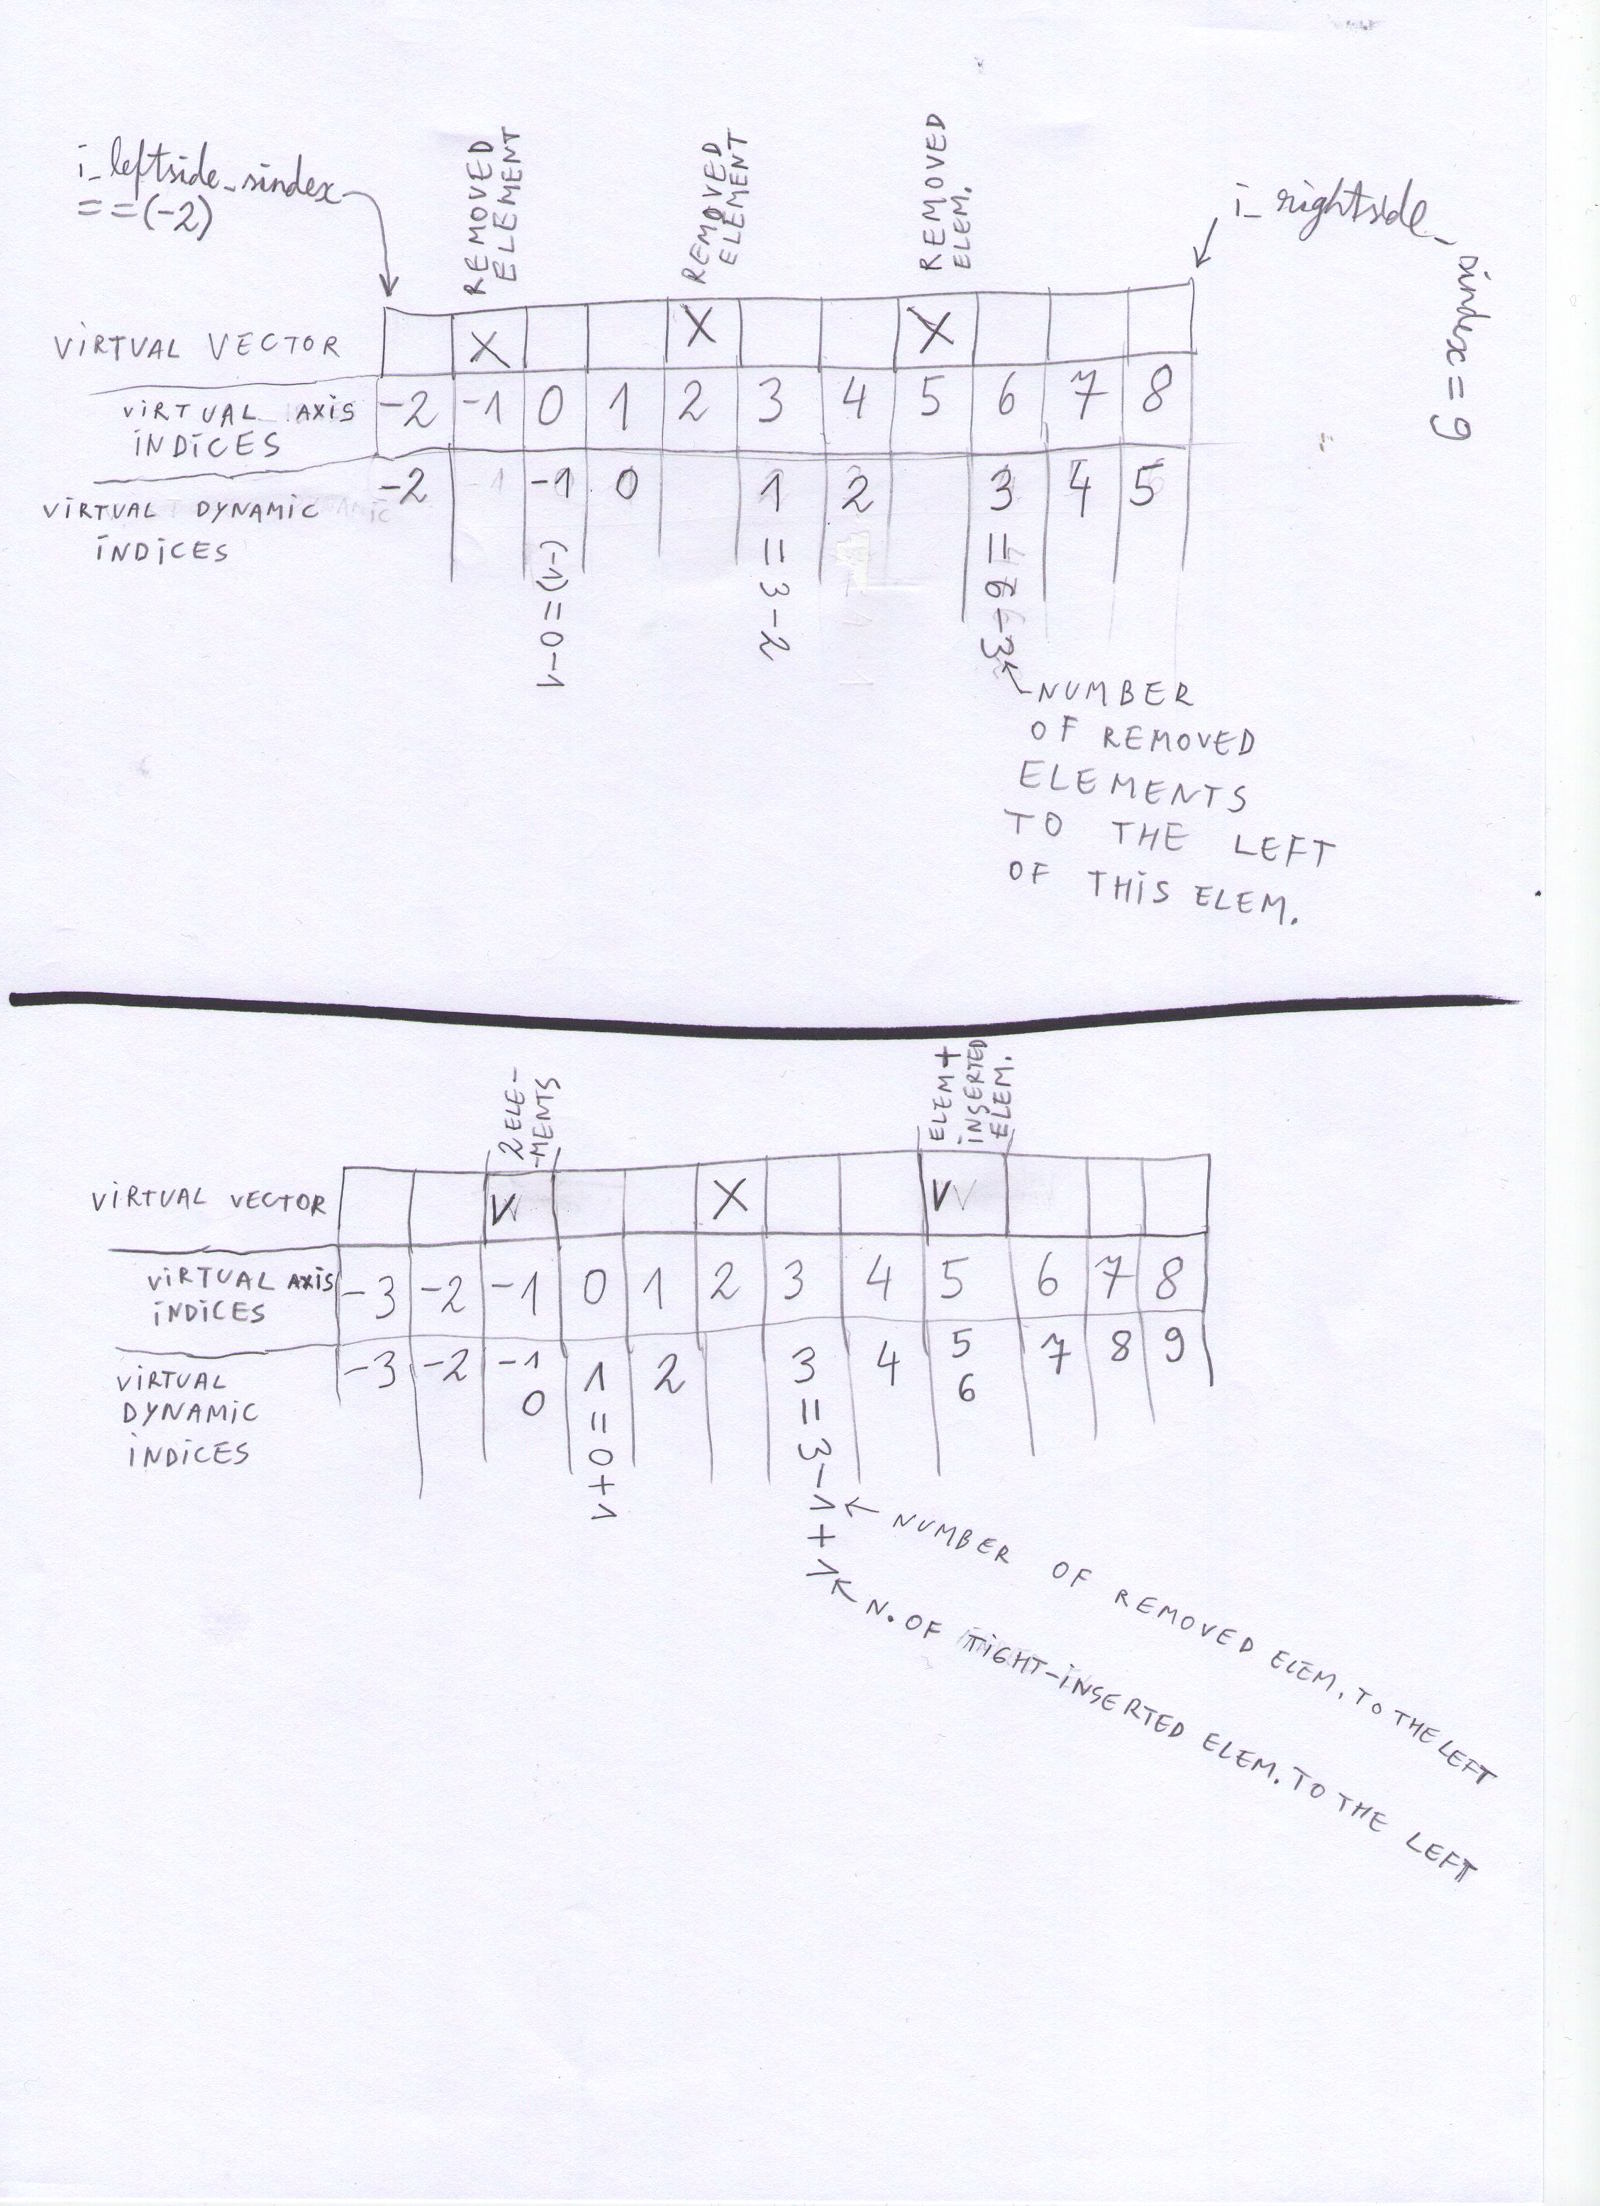 i_leftside_sindex
==(-2)
REMOVED
ELEMENT
REMOVED
ELEMENT
REMOVED
ELEM.
i_rightside_sindex=9
VIRTUAL VECTOR X X X
VIRTUAL AXIS
INDICES
-2 -1 0 1 2 3 4 5 6 7 8
VIRTUAL DYNAMIC
INDICES
-2 -1 0 1 2 3 4 5
(-1)=0-1
=3-2
=6-3
NUMBER
OF REMOVED
ELEMENTS
TO THE LEFT
OF THIS ELEM.
2 ELE-
-MENTS
ELEM+
INSERTED
ELEM.
VIRTUAL VECTOR V X V
VIRTUAL AXIS
INDICES
-3 -2 -1 0 1 2 3 4 5 6 7 8
VIRTUAL
DYNAMIC
INDICES
-3 -2 -1 1 2 3 4 5 7 8 9
0 6
=0+1
=3-1+1
NUMBER OF REMOVED ELEM. TO THE LEFT
N. OF TIGHT-INSERTED ELEM. TO THE LEFT